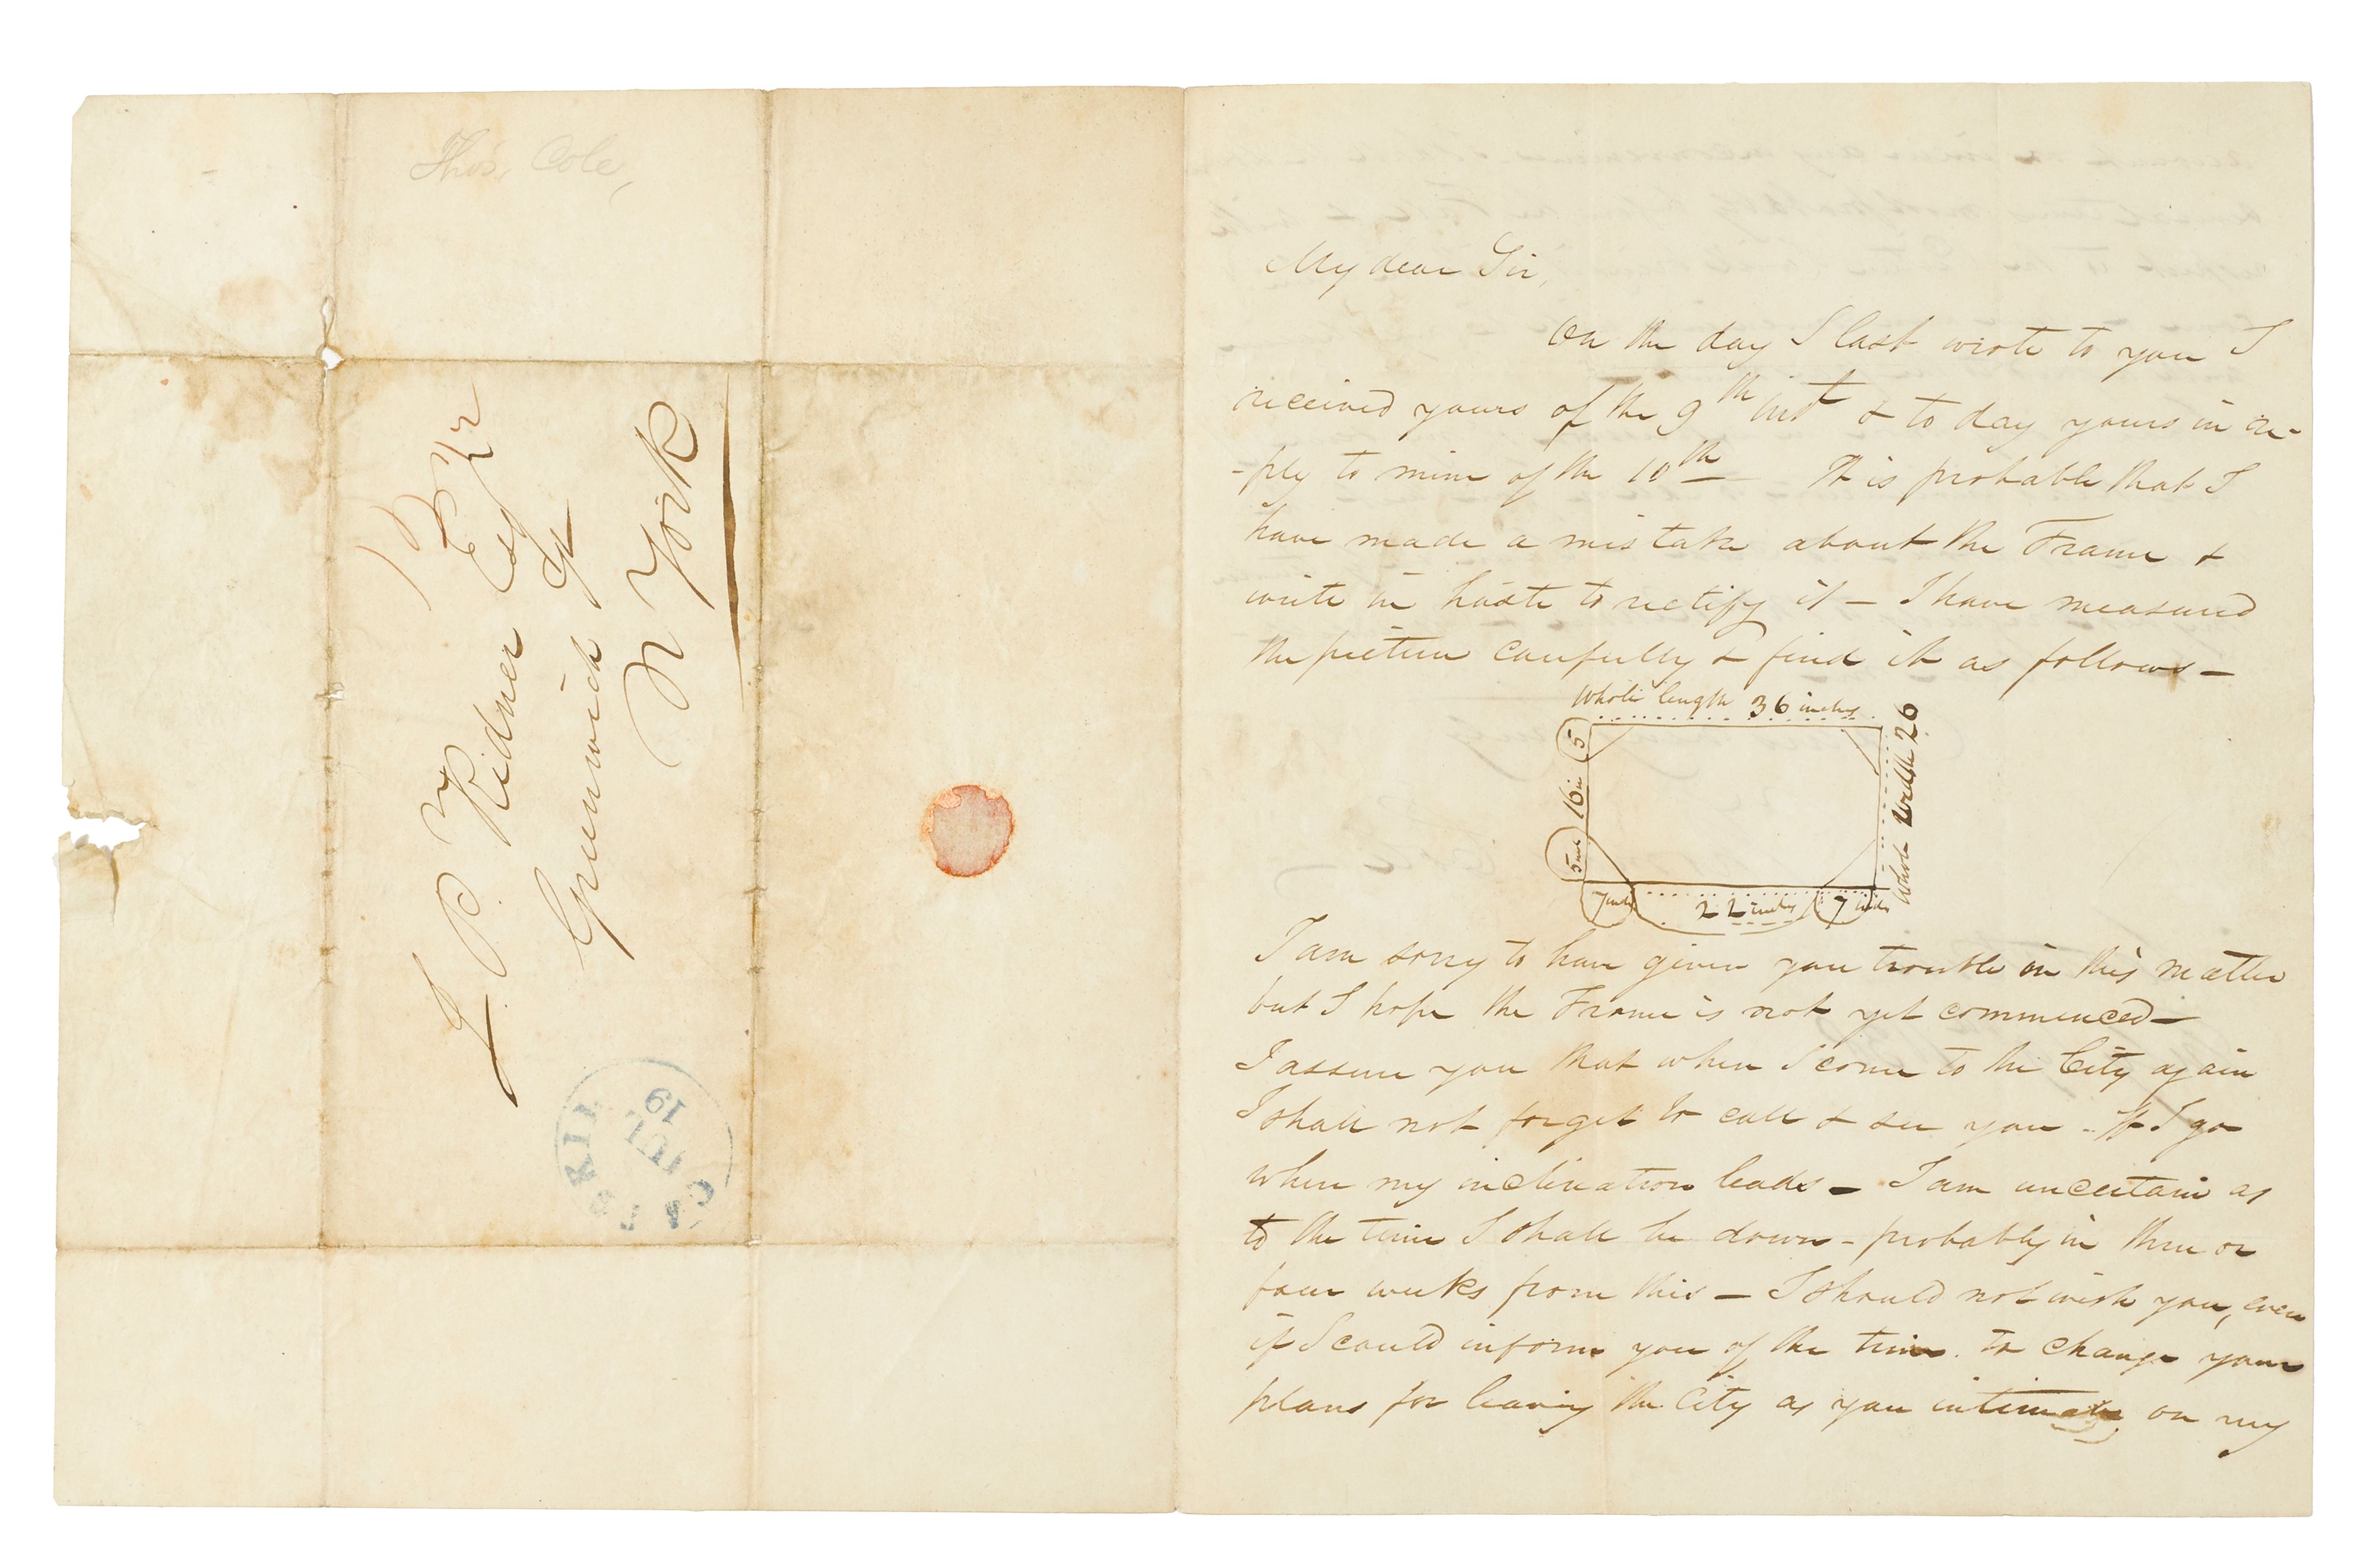 Thos. Cole,
J. P. Ridner Esqr
Greenwich St
N York
CATSKILL
JUL
19
My dear Sir,
On the day I last wrote to you I
received yours of the 9th inst & to day yours in re-
-ply to mine of the 10th It is probable that I
have made a mistake about the Frame &
write in haste to rectify it — I have measured
the picture carefully & find it as follows —
Whole length 36 inches
5
16 in
5 inch
Whole Width 26
7 inches
22 inches
7 inches
I am sorry to have given you trouble in this matter
but I hope the Frame is not yet commenced —
I assure you that when I come to the City again
I shall not forget to call & see you - If I go
where my inclination leads — I am uncertain as
to the time I shall be down - probably in three or
four weeks from this — I should not wish you, even
if I could inform you of the time. to change your
plans for leaving the City as you intimate, on my